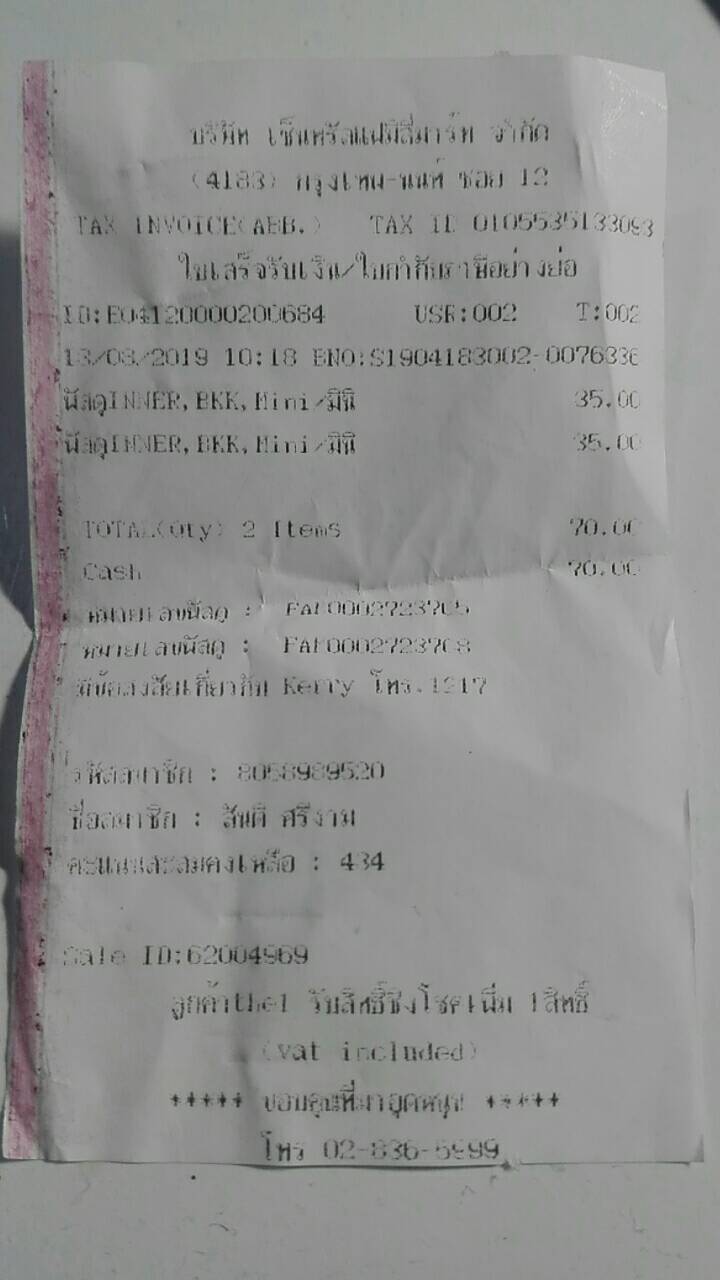 บริษัท เซ็นทรัลแฟมิลี่มาร์ท จำกัด
(4183) กรุงเทพ-นนท์ ซอย 12
TAX INVOICE(ABB.) TAX ID 0105535133093
ใบเสร็จรับเงิน/ใบกำกับภาษีอย่างย่อ
ID:E04120000200684 USR:002 T:002
13/03/2019 10:18 BNO:S1904183002-0076336
พัสดุINNER,BKK,Mini/มินิ 35.00
พัสดุINNER,BKK,Mini/มินิ 35.00
TOTAL(Qty) 2 Items 70.00
Cash 70.00
หมายเลขพัสดุ : FAF0002723705
หมายเลขพัสดุ : FAF0002723708
มีข้อสงสัยเกี่ยวกับ Kerry โทร.1217
รหัสสมาชิก : 8058989520
ชื่อสมาชิก : สันติ ศรีงาม
คะแนนสะสมคงเหลือ : 434
Sale ID:62004969
ลูกค้าthe1 รับสิทธิ์ชิงโชคเพิ่ม 1สิทธิ์
(vat included)
***** ขอบคุณที่มาอุดหนุน *****
โทร 02-836-5999